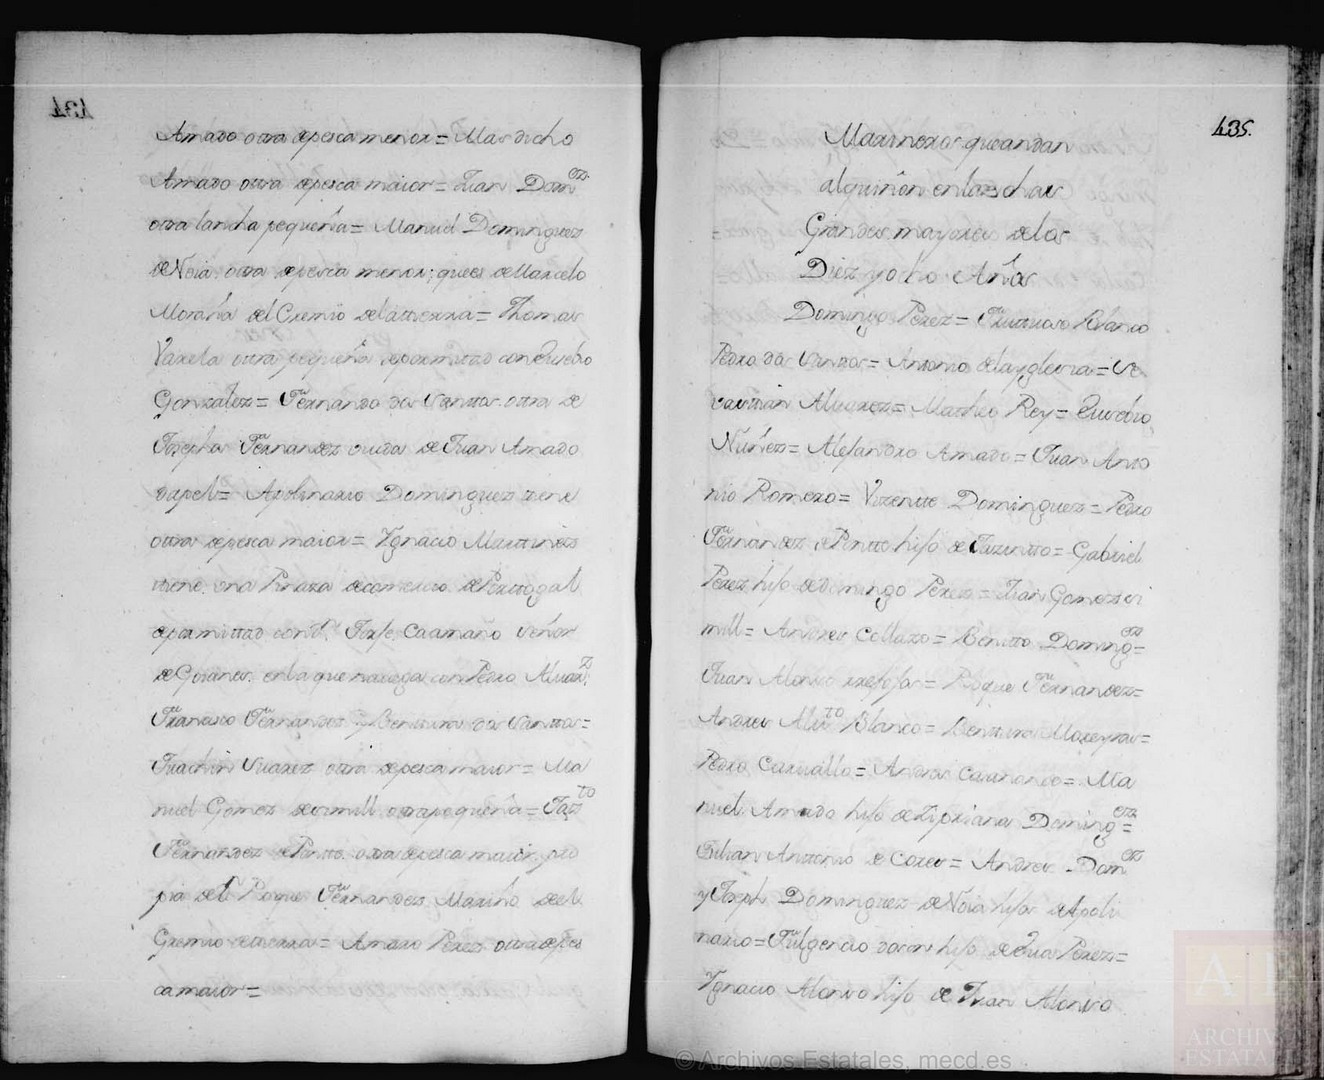 434
Amado otra de pesca menor = Mas dicho
Amado otra de pesca maior = Juan Dom^ez
otra lancha pequeña = Manuel Dominguez
de Noia otra de pesca menor; que es de Marcelo
Moraña del Gremio de la tierra = Thomas
Varela otra pequeña de por mitad con Eusebio
Gonzalez = Fernando dos Santtos otra de
Josepha Fernandez viuda de Juan Amado
Apolinario Dominguez tiene
ottra de pesca maior = Ygnacio Marttinez
tiene una Pinaza de comercio de Porttogal
de por mittad con Jose Caamaño señor
de Goianes, en la que navega con Pedro Alvar^z;
Francisco Fernandez y Benttura dos Santtos =
Juachin Suarez ottra de pesca maior = Ma
nuel Gomez de otra pequeña = Jaz^to
Fernandez de Pontte otra de pesca maior, pro
pia de Roque Fernandez Mariño de el
Gremio de tierra = Amaro Perez ottra de pes
ca maior =
435.
Marineros que andan
al quiñon en las dchas
Grandes mayores de los
Diez y ocho Años
Domingo Perez = Fruttuoso Blanco
Pedro dos Santtos = Antonio de la yglesia = Se
vasttian Alvarez = Matheo Rey = Eusebio
Nuñez = Alejandro Amado = Juan Anto
nio Romero = Vizentte Dominguez = Pedro
Fernandez de Pontte hijo de Jazintto = Gabriel
Perez hijo de Domingo Perez = Juan Gomez
= Andres Collazo = Benitto Doming^ez =
Juan Alonso = Roque Fernandez =
Andres Blanco = Benttura Moreyras =
Pedro Carvallo = Andres Caamaño = Ma
nuel Amado hijo de Zipriana Doming^ez =
Julian Anttonio de Cores = Andres Dom^ez
y Joseph Dominguez de Noia hijos de Apoli
nario = Fulgencio hijo de Perez =
Ygnacio Alonso hijo de Juan Alonso
© Archivos Estatales, mecd.es